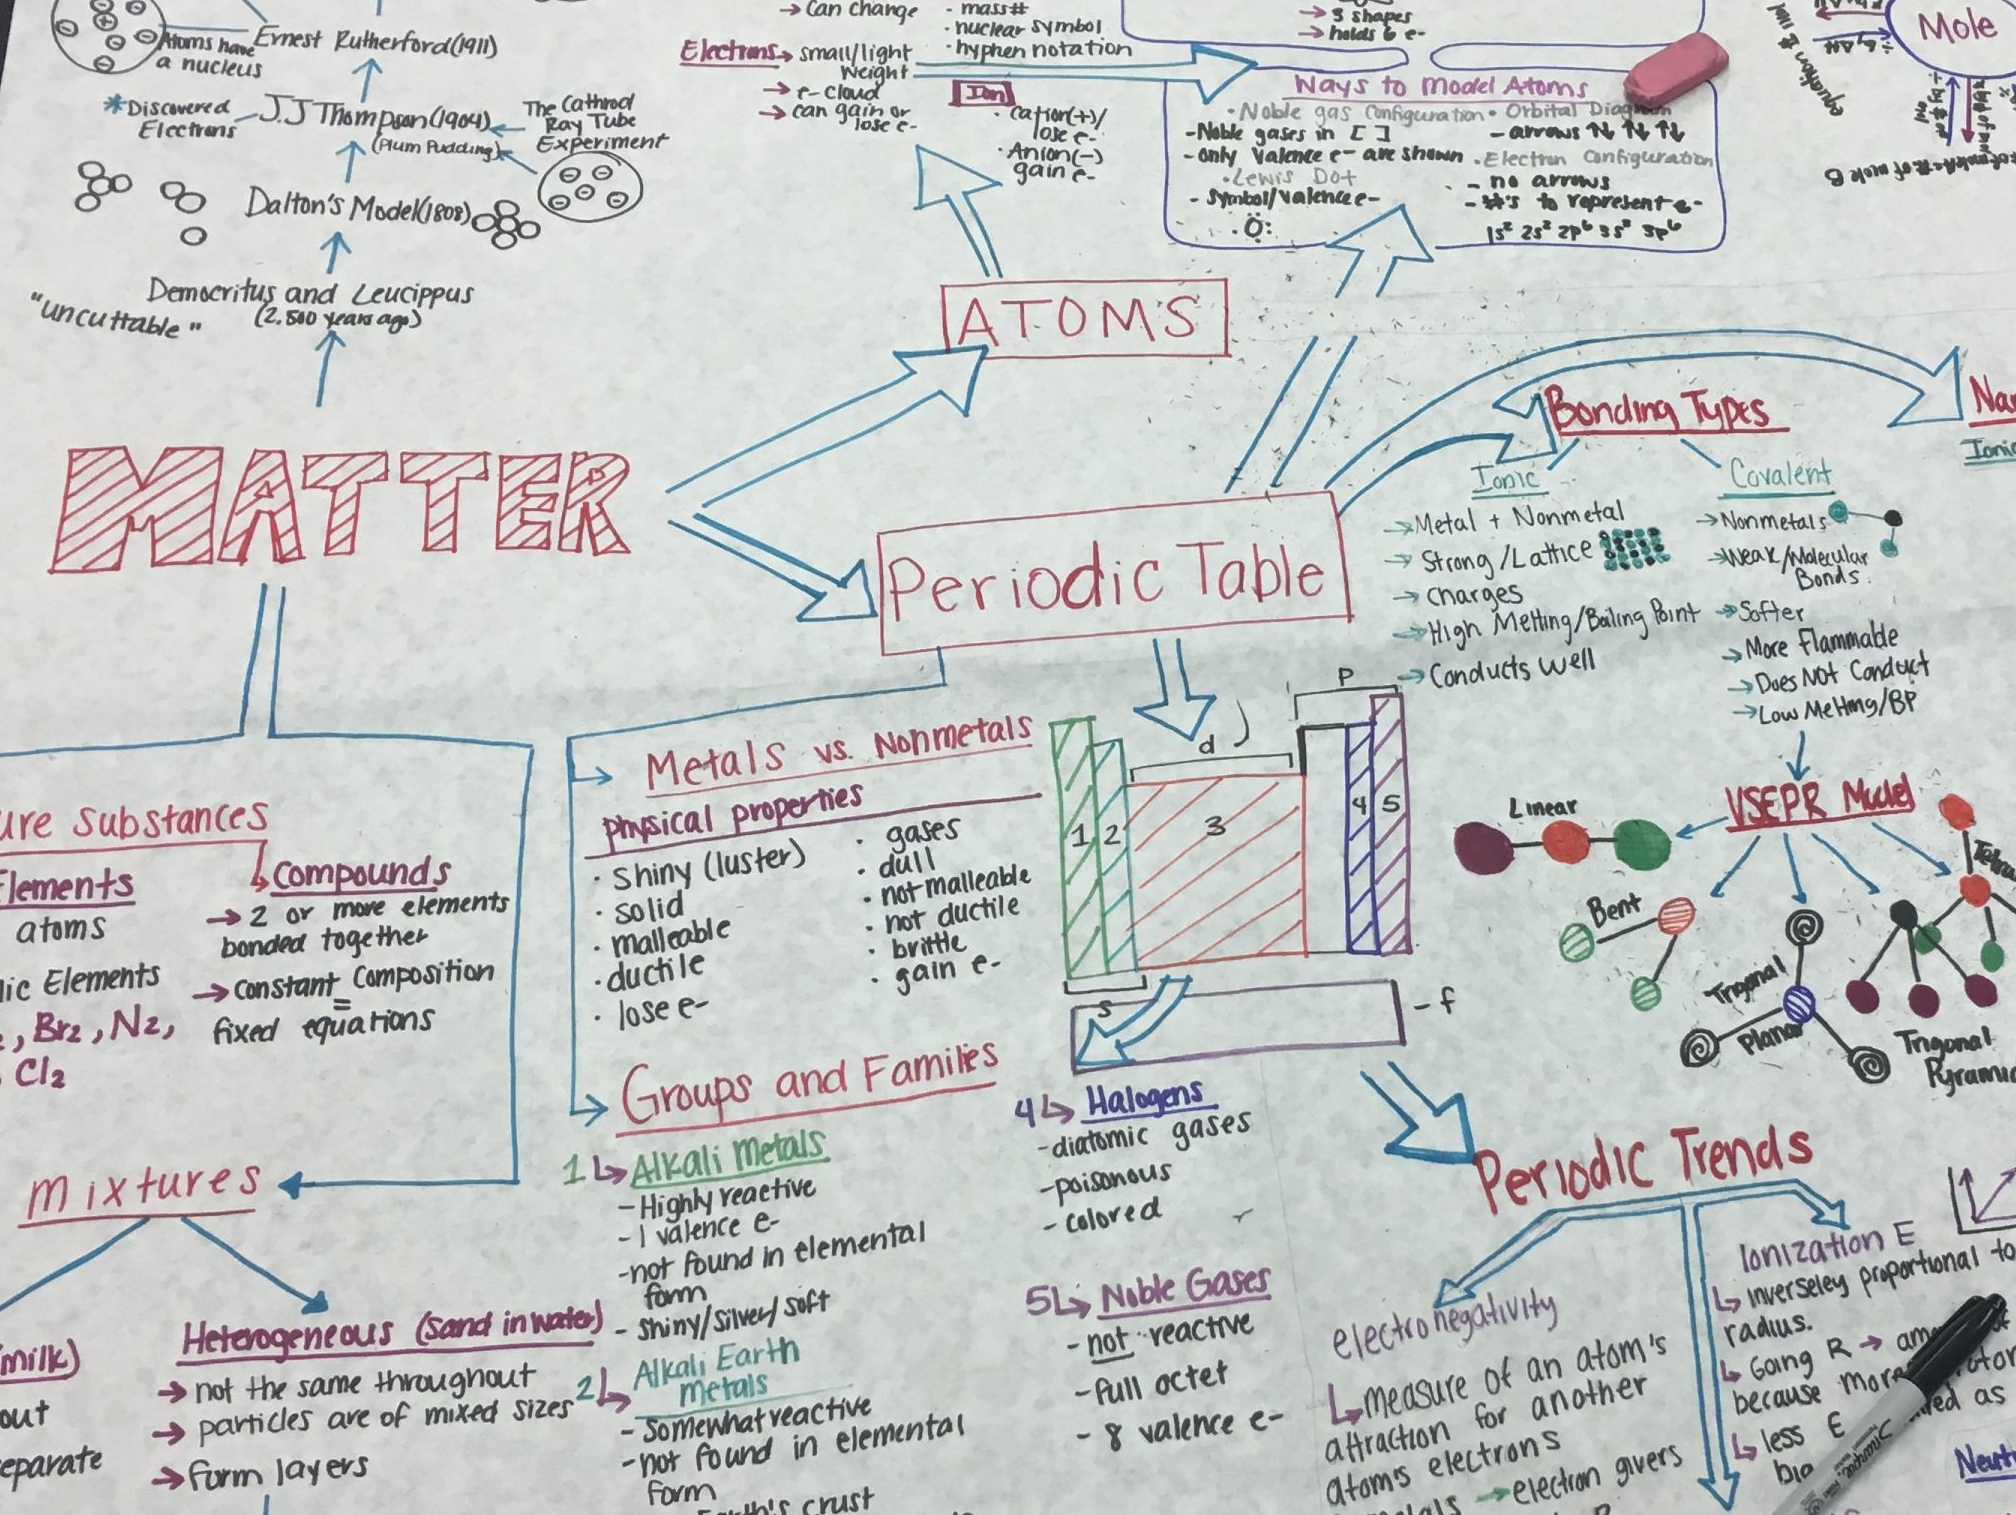 Atoms have
a nucleus
Ernest Rutherford (1911)
*Discovered
Electrons
J.J Thompson (1904)
(Plum Pudding)
The Cathrod
Ray Tube
Experiment
Dalton's Model (1808)
Democritus and Leucippus
(2,500 years ago)
"uncuttable"
MATTER
→ Can change
Electrons → small/light
weight
→ e-cloud
→ can gain or
lose e-
· mass#
· nuclear symbol
· hyphen notation
Ion
· Cation(+)/
lose e-
· Anion(-)
gain e-
→ 3 shapes
→ holds 6 e-
Ways to Model Atoms
· Noble gas Configuration
- Noble gases in [ ]
- only valence e- are shown
· Lewis Dot
- symbol/valence e-
· Orbital Diagram
- arrows ↑↓ ↑↓ ↑↓
· Electron Configuration
- no arrows
- #'s to represent e-
1s² 2s² 2p⁶ 3s² 3p⁶
Mole
equation
ATOMS
Periodic Table
Bonding Types
Ionic
→ Metal + Nonmetal
→ Strong/Lattice
→ charges
→ High Melting/Boiling Point
→ Conducts well
Covalent
→ Nonmetals
→ Weak/Molecular
Bonds.
→ Softer
→ More Flammable
→ Does NOT Conduct
→ Low Melting/BP
VSEPR Model
Linear
Bent
Trigonal
Planar
Trigonal
ure substances
Elements
atoms
ic Elements
, Br₂, N₂,
Cl₂
Compounds
→ 2 or more elements
bonded together
→ Constant Composition
=
fixed equations
Metals vs. Nonmetals
physical properties
· shiny (luster)
· solid
· malleable
· ductile
· lose e-
· gases
· dull
· not malleable
· not ductile
· brittle
· gain e-
P
d
1 2 3 4 5
s
- f
mixtures
milk)
out
eparate
Heterogeneous (sand in water)
→ not the same throughout
→ particles are of mixed sizes
→ form layers
Groups and Families
1 ↳ Alkali Metals
- Highly reactive
- 1 valence e-
- not found in elemental
form
- shiny/silver/soft
2 ↳ Alkali Earth
metals
- somewhat reactive
- not found in elemental
form
Earth's crust
4 ↳ Halogens
- diatomic gases
- poisonous
- colored
5 ↳ Noble Gases
- not reactive
- full octet
- 8 valence e-
Periodic Trends
electronegativity
↳ measure of an atom's
attraction for another
atom's electrons
→ electron givers
Ionization E
↳ inverseley proportional to
radius.
↳ Going R →
because more
↳ less E
as
Sharpie